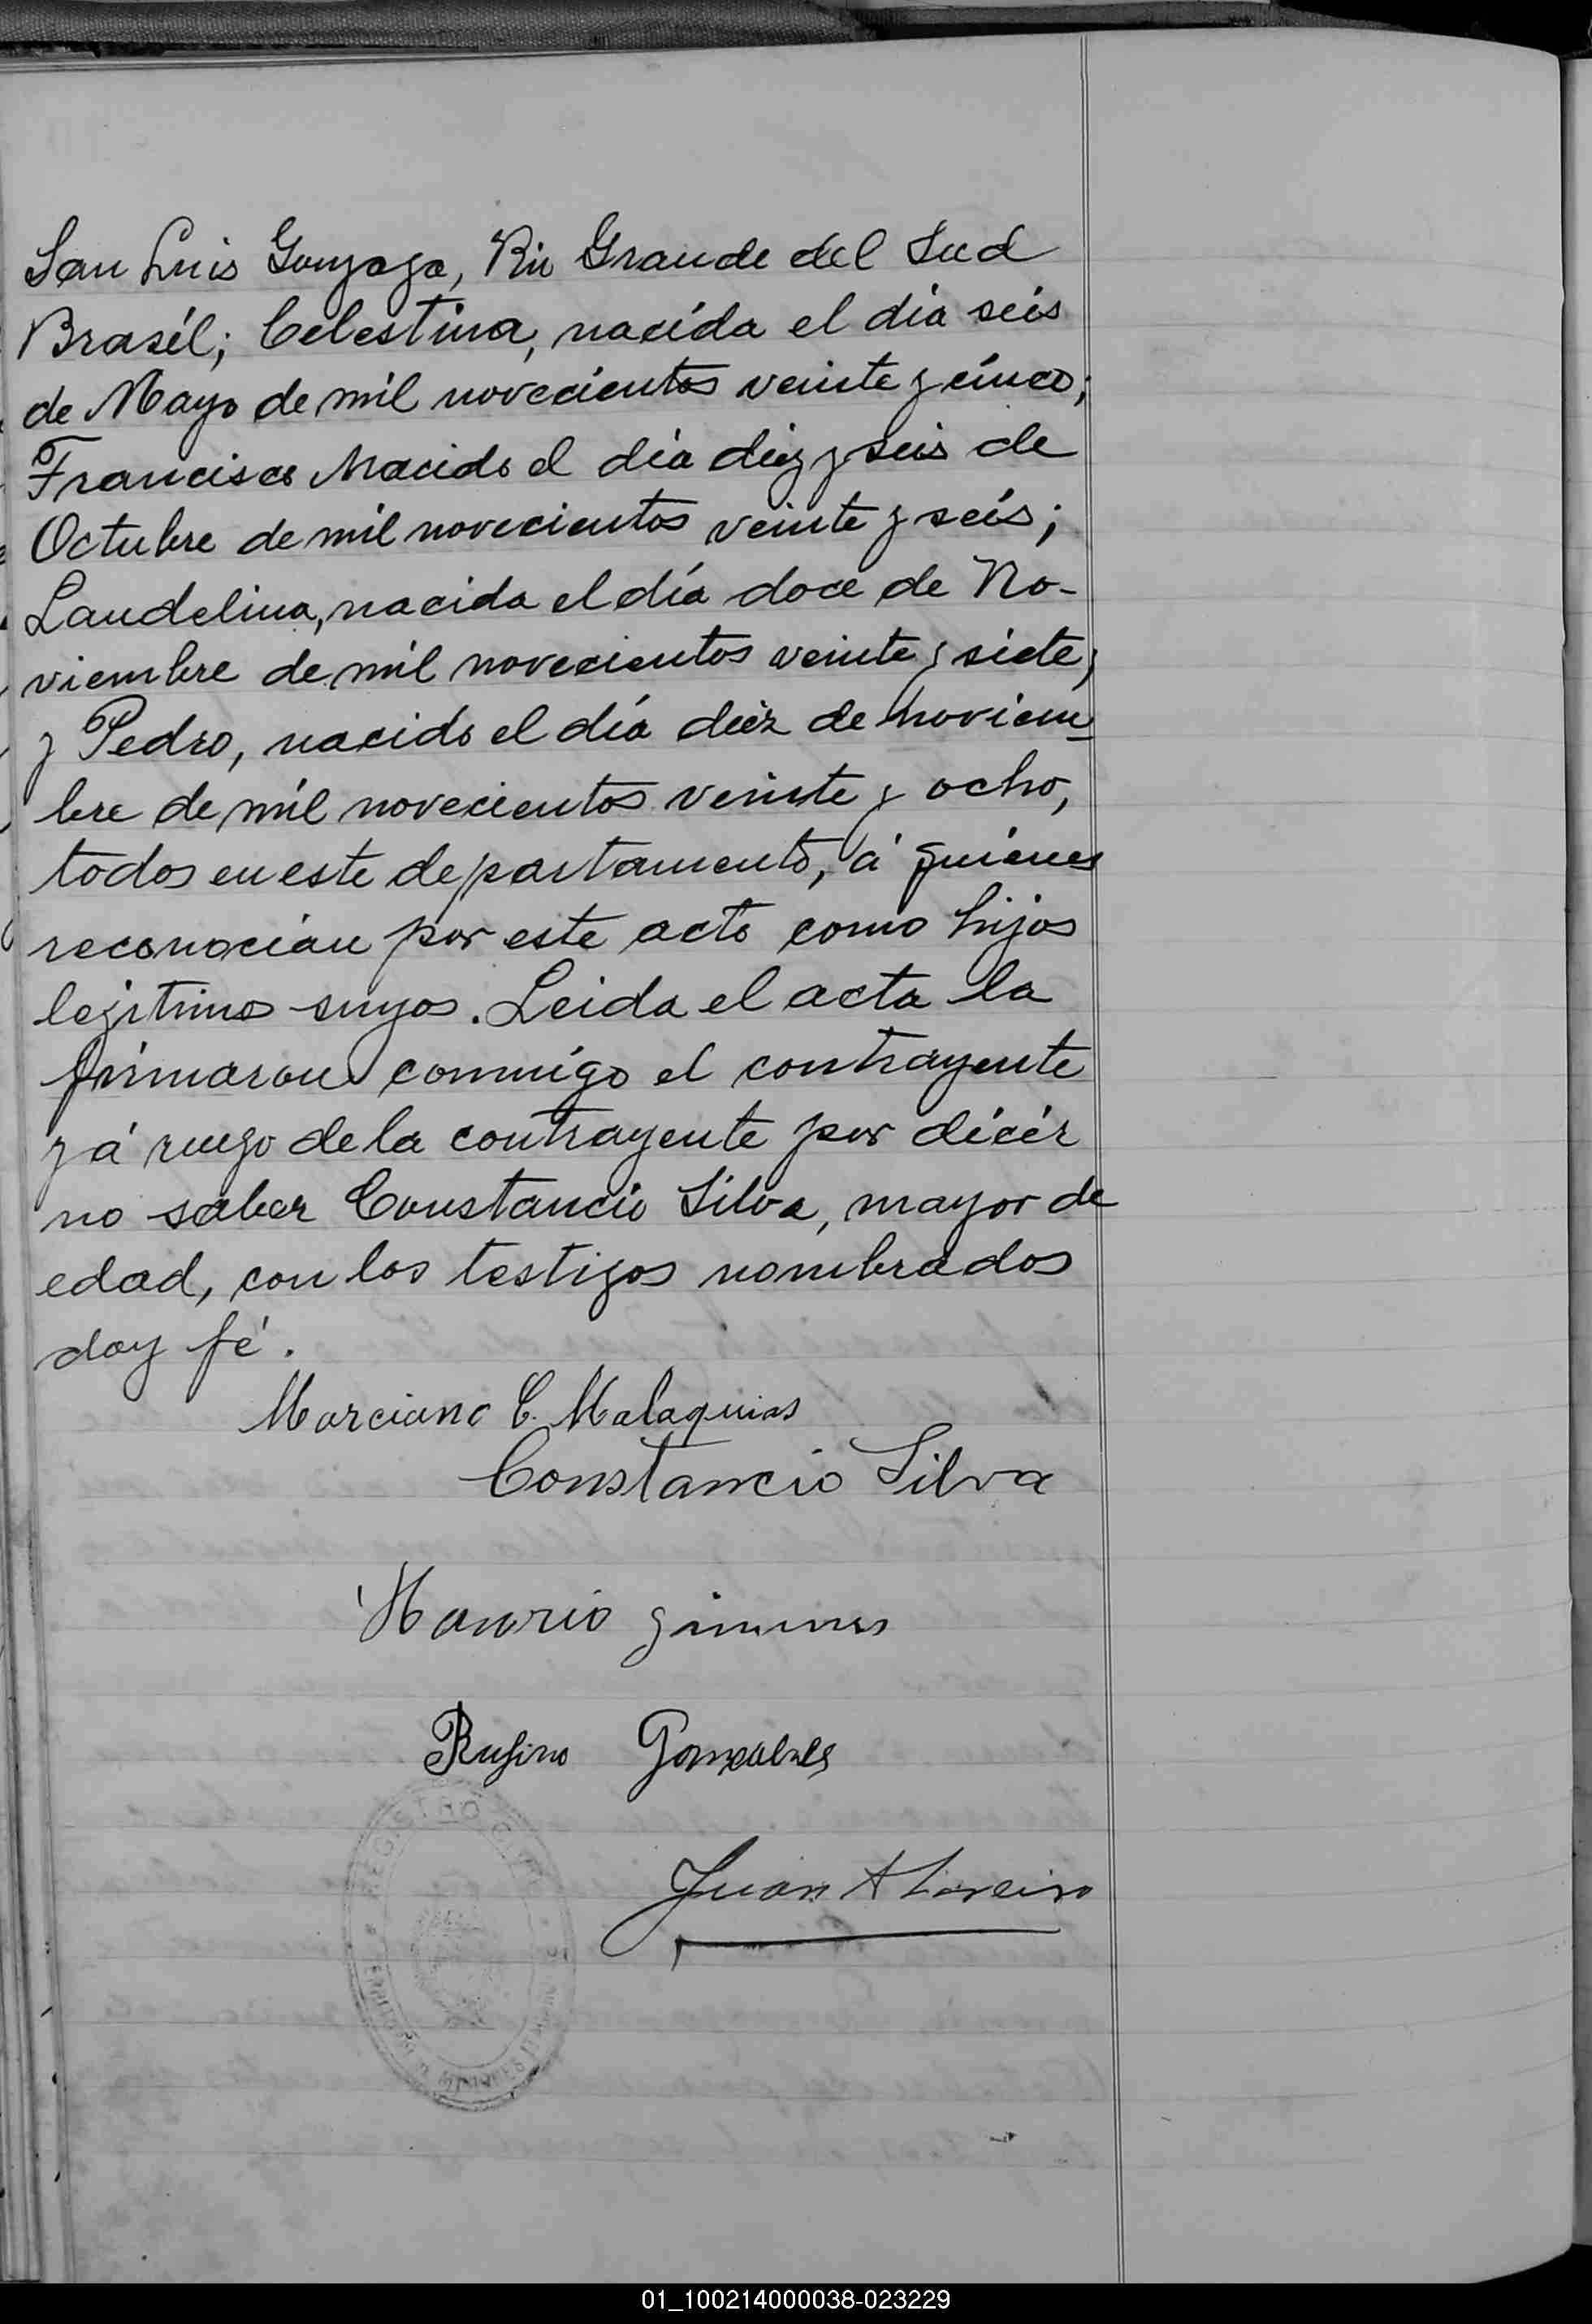 San Luis Gonzaga, Rio Grande del Sud
Brasil; Celestina, nacida el día seis
de Mayo de mil novecientos veinte y cinco;
Francisco Nacido el día diez y seis de
Octubre de mil novecientos veinte y seis;
Laudelina, nacida el día doce de No-
viembre de mil novecientos veinte y siete;
y Pedro, nacido el día diez de noviem-
bre de mil novecientos veinte y ocho,
todos en este departamento, á quienes
reconocían por este acto como hijos
legitimos suyos. Leida el acta la
firmaron conmigo el contrayente
y á ruego de la contrayente por décir
no saber Constancio Silva, mayor de
edad, con los testigos nombrados
doy fé.
Marciano C. Malaquias
Constancio Silva
Rufino Gonzalves
Juan A
REGISTRO CIVIL
MISIONES
01_100214000038-023229